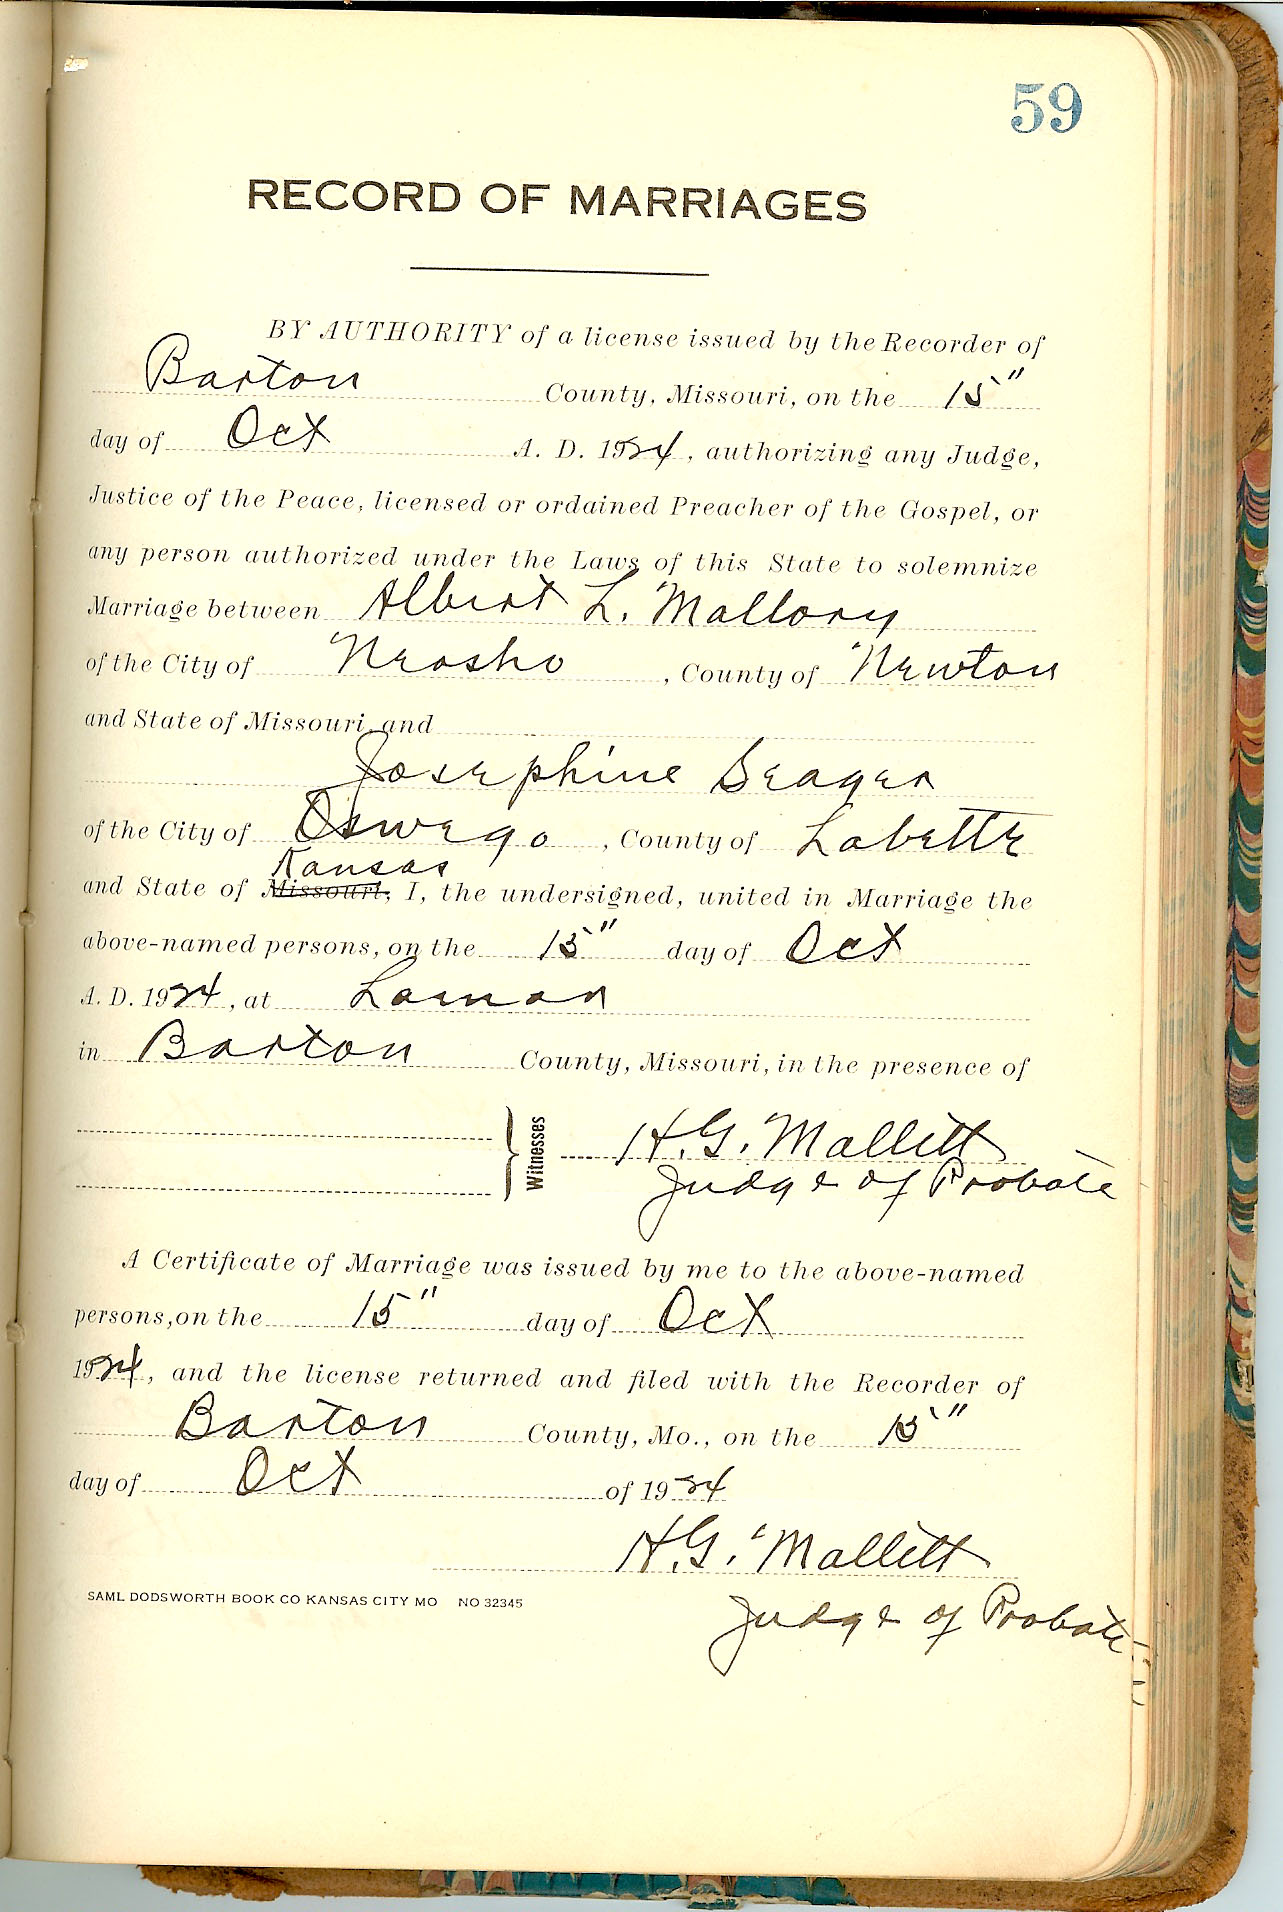 59
RECORD OF MARRIAGES
BY AUTHORITY of a license issued by the Recorder of
Barton County, Missouri, on the 15"
day of Oct A. D. 1924, authorizing any Judge,
Justice of the Peace, licensed or ordained Preacher of the Gospel, or
any person authorized under the Laws of this State to solemnize
Marriage between Albert L. Mallory
of the City of Neosho, County of Newton
and State of Missouri, and
Josephine Seager
of the City of Oswego, County of Labette
Kansas
and State of Missouri, I, the undersigned, united in Marriage the
above-named persons, on the 15" day of Oct
A. D. 1924, at Lamar
in Barton County, Missouri, in the presence of
Witnesses H.G. Mallett
Judge of Probate
A Certificate of Marriage was issued by me to the above-named
persons, on the 15" day of Oct
1924, and the license returned and filed with the Recorder of
Barton County, Mo., on the 15"
day of Oct of 1924
H.G. Mallett
SAML DODSWORTH BOOK CO KANSAS CITY MO NO 32345
Judge of Probate